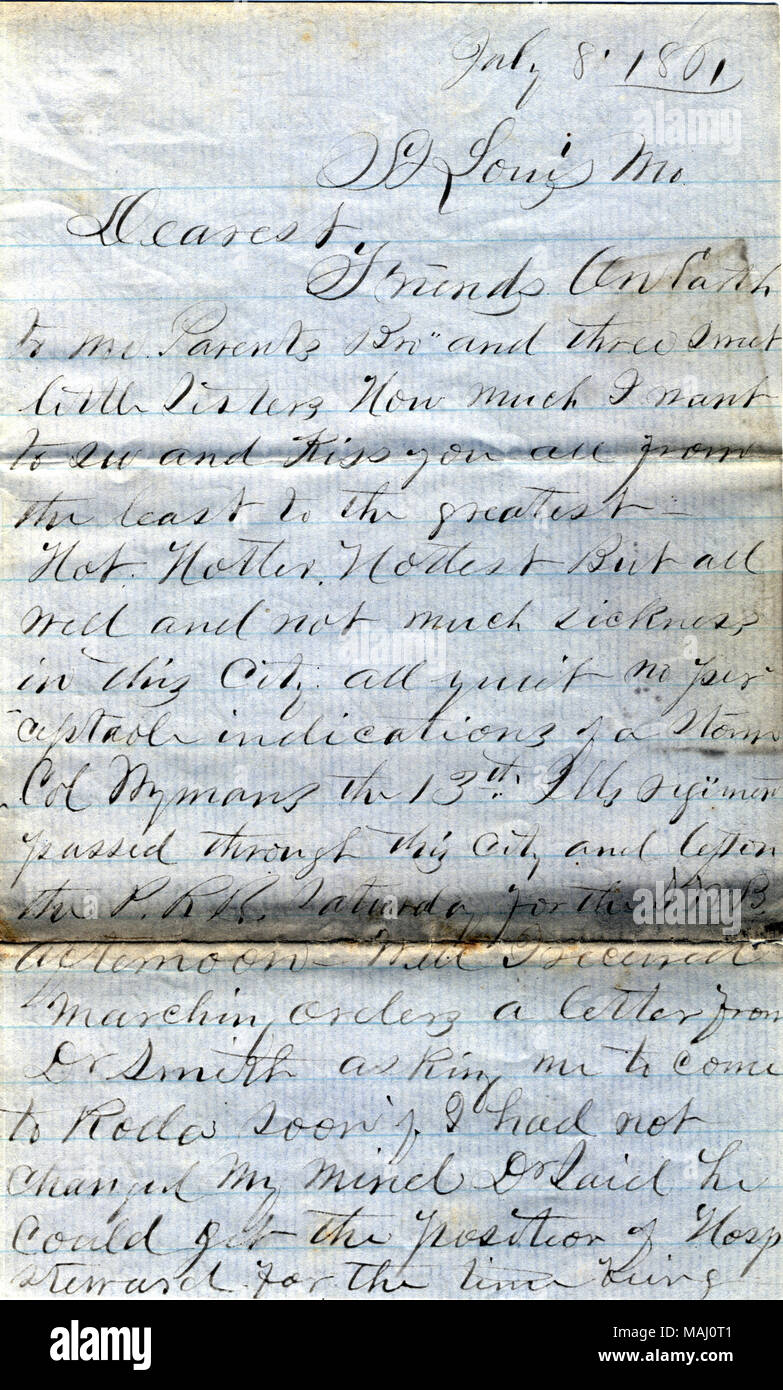 July 8. 1861
St Louis Mo.
Dearest
Friends On Earth
to me. Parents Bro" and three sweet
little Sisters How much I want
to see and Kiss you all from
the least to the greatest –
Hot. Hotter. Hottest But all
well and not much sickness
in this City. all quiet no per
ceptable indications of a storm
Col Wymans the 13th Ills regiment
passed through this City and left on
the P. R R. Saturday for the
afternoon – Well I received
Marching orders a letter from
Dr Smith asking me to come
to Rolla soon if I had not
changed My mind Dr Said he
could get the position of Hosp
steward for the time being
alamy
alamy
alamy
a
a
a
a
alamy
Image ID: MAJ0T1
www.alamy.com